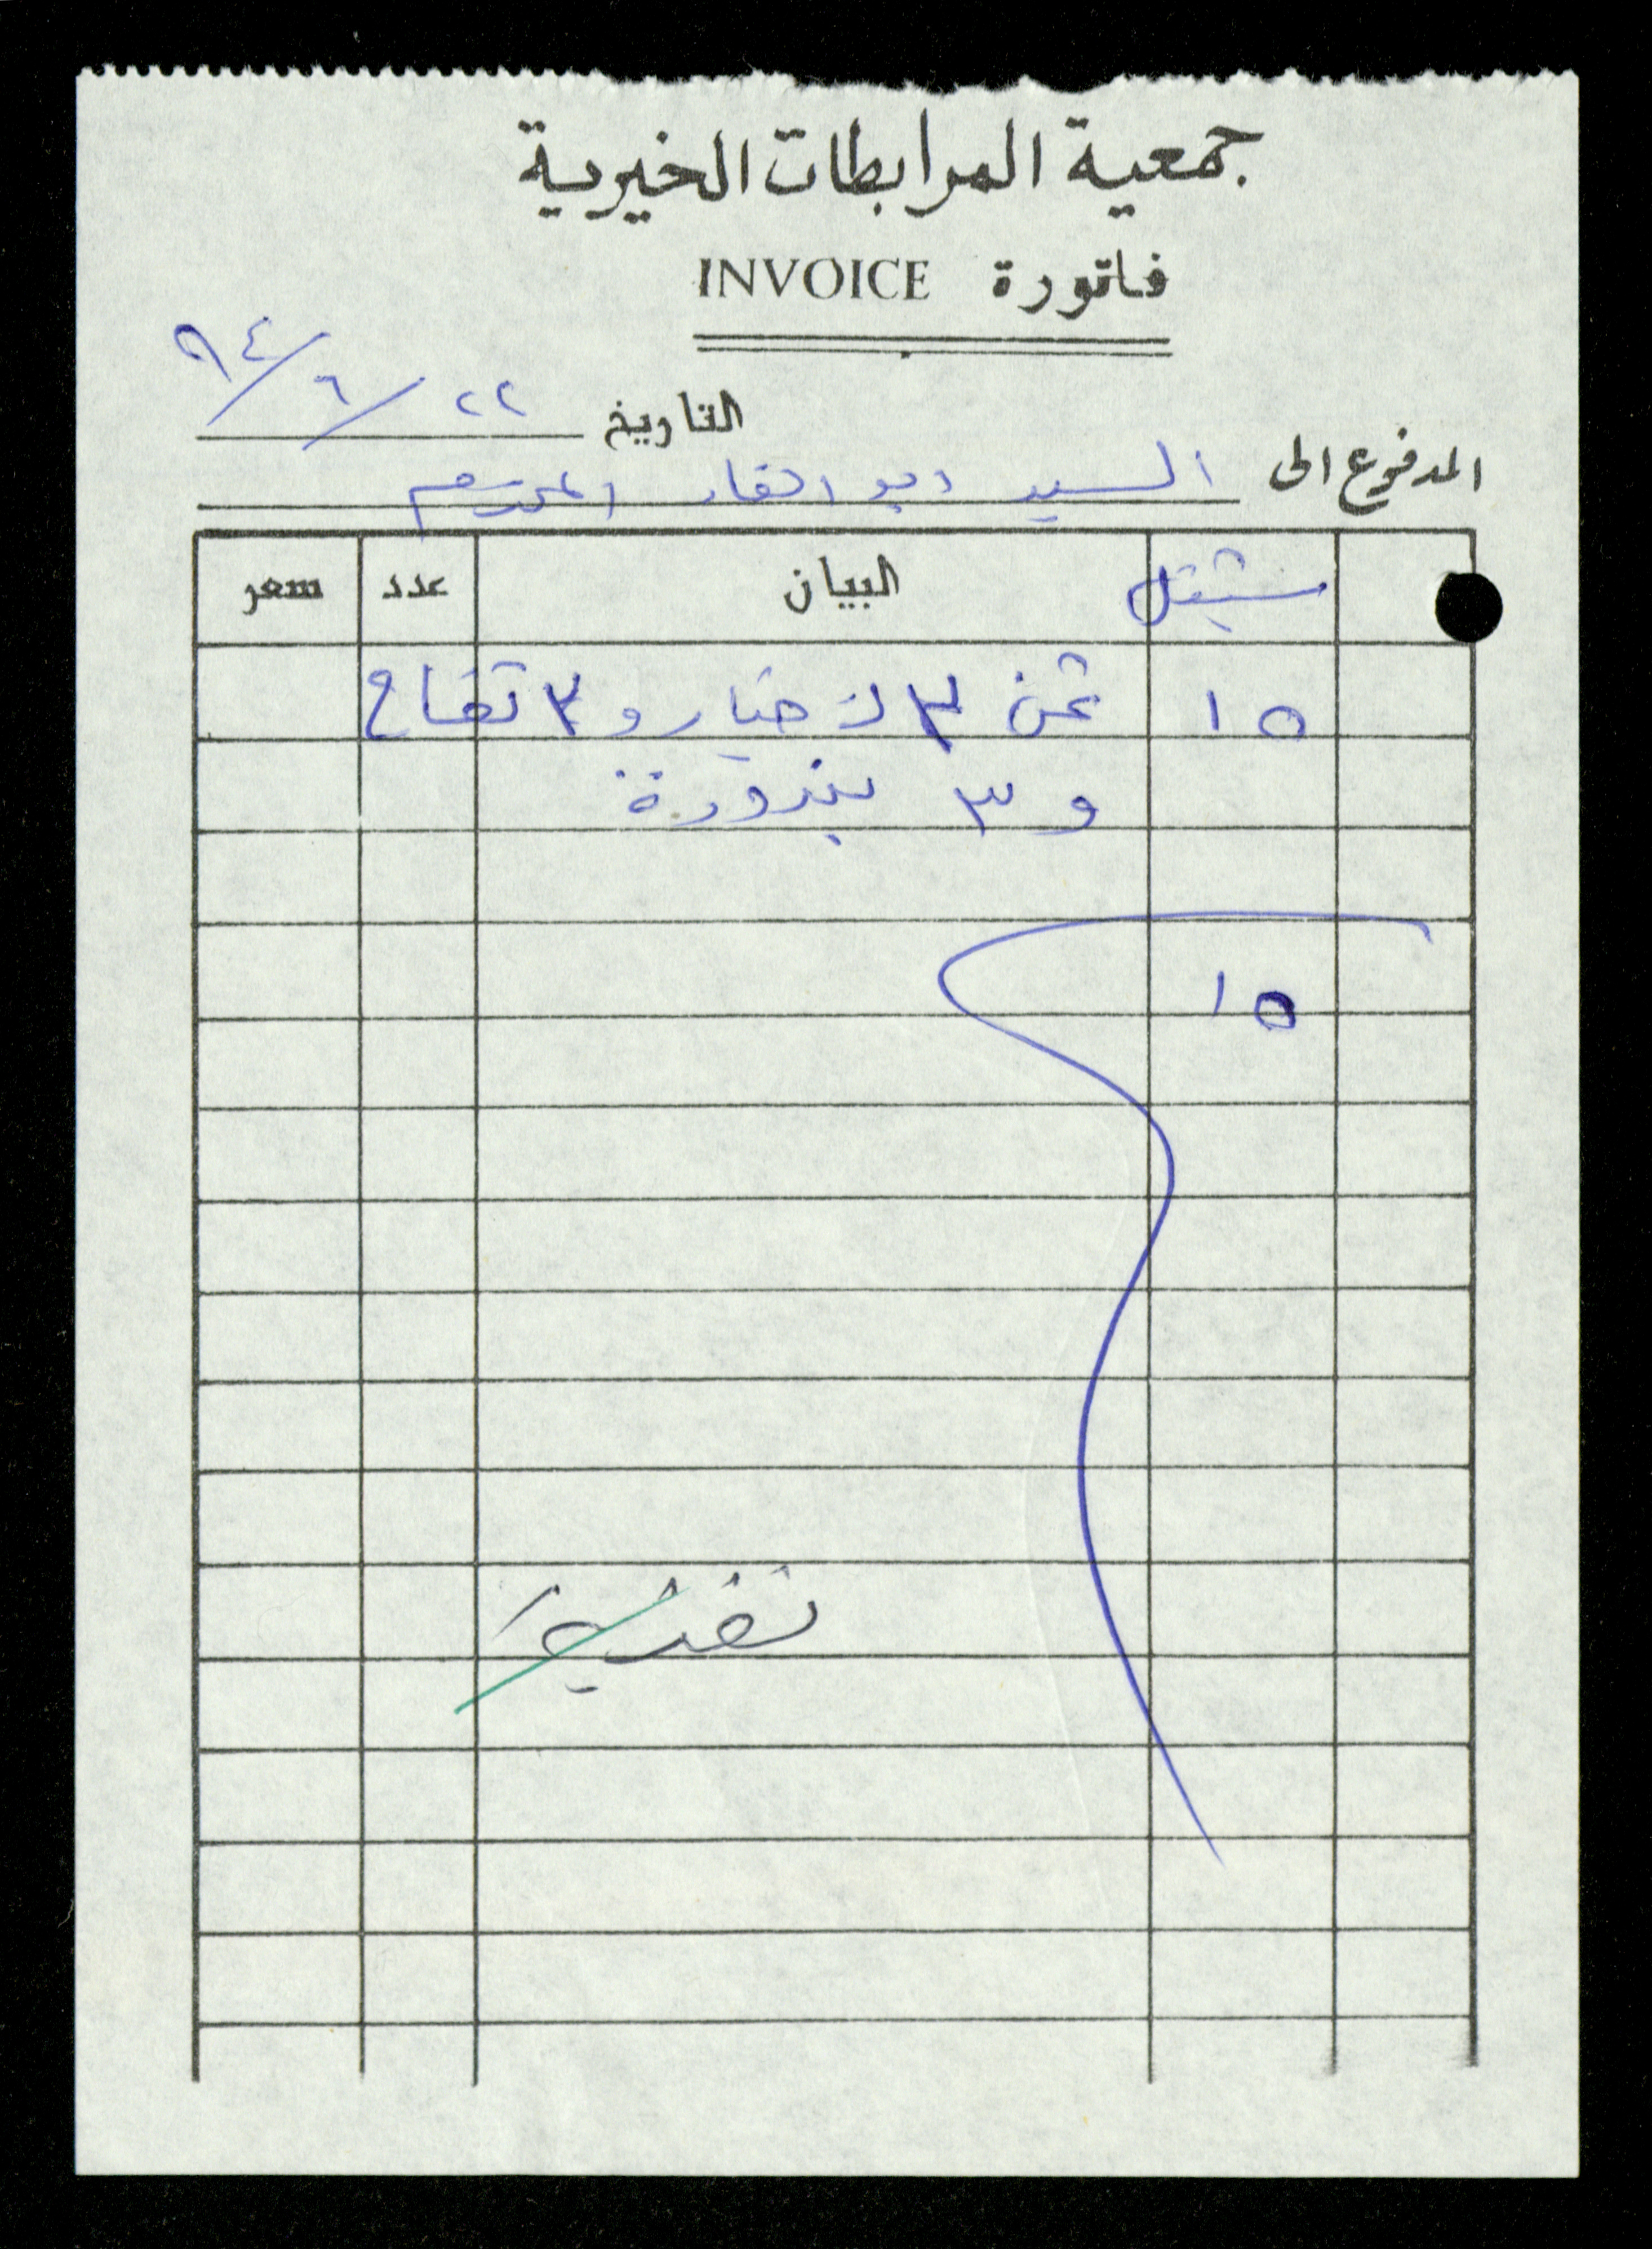 جمعية المرابطات الخيرية
فاتورة INVOICE
التاريخ ٢٢/٦/٩٤
المدفوع الى السيد ابو الفار المحترم
شيقل البيان عدد سعر
١٥ ثمن ٣ ك خيار و ٢ تفاح
و ٣ بندورة
١٥
نقدية